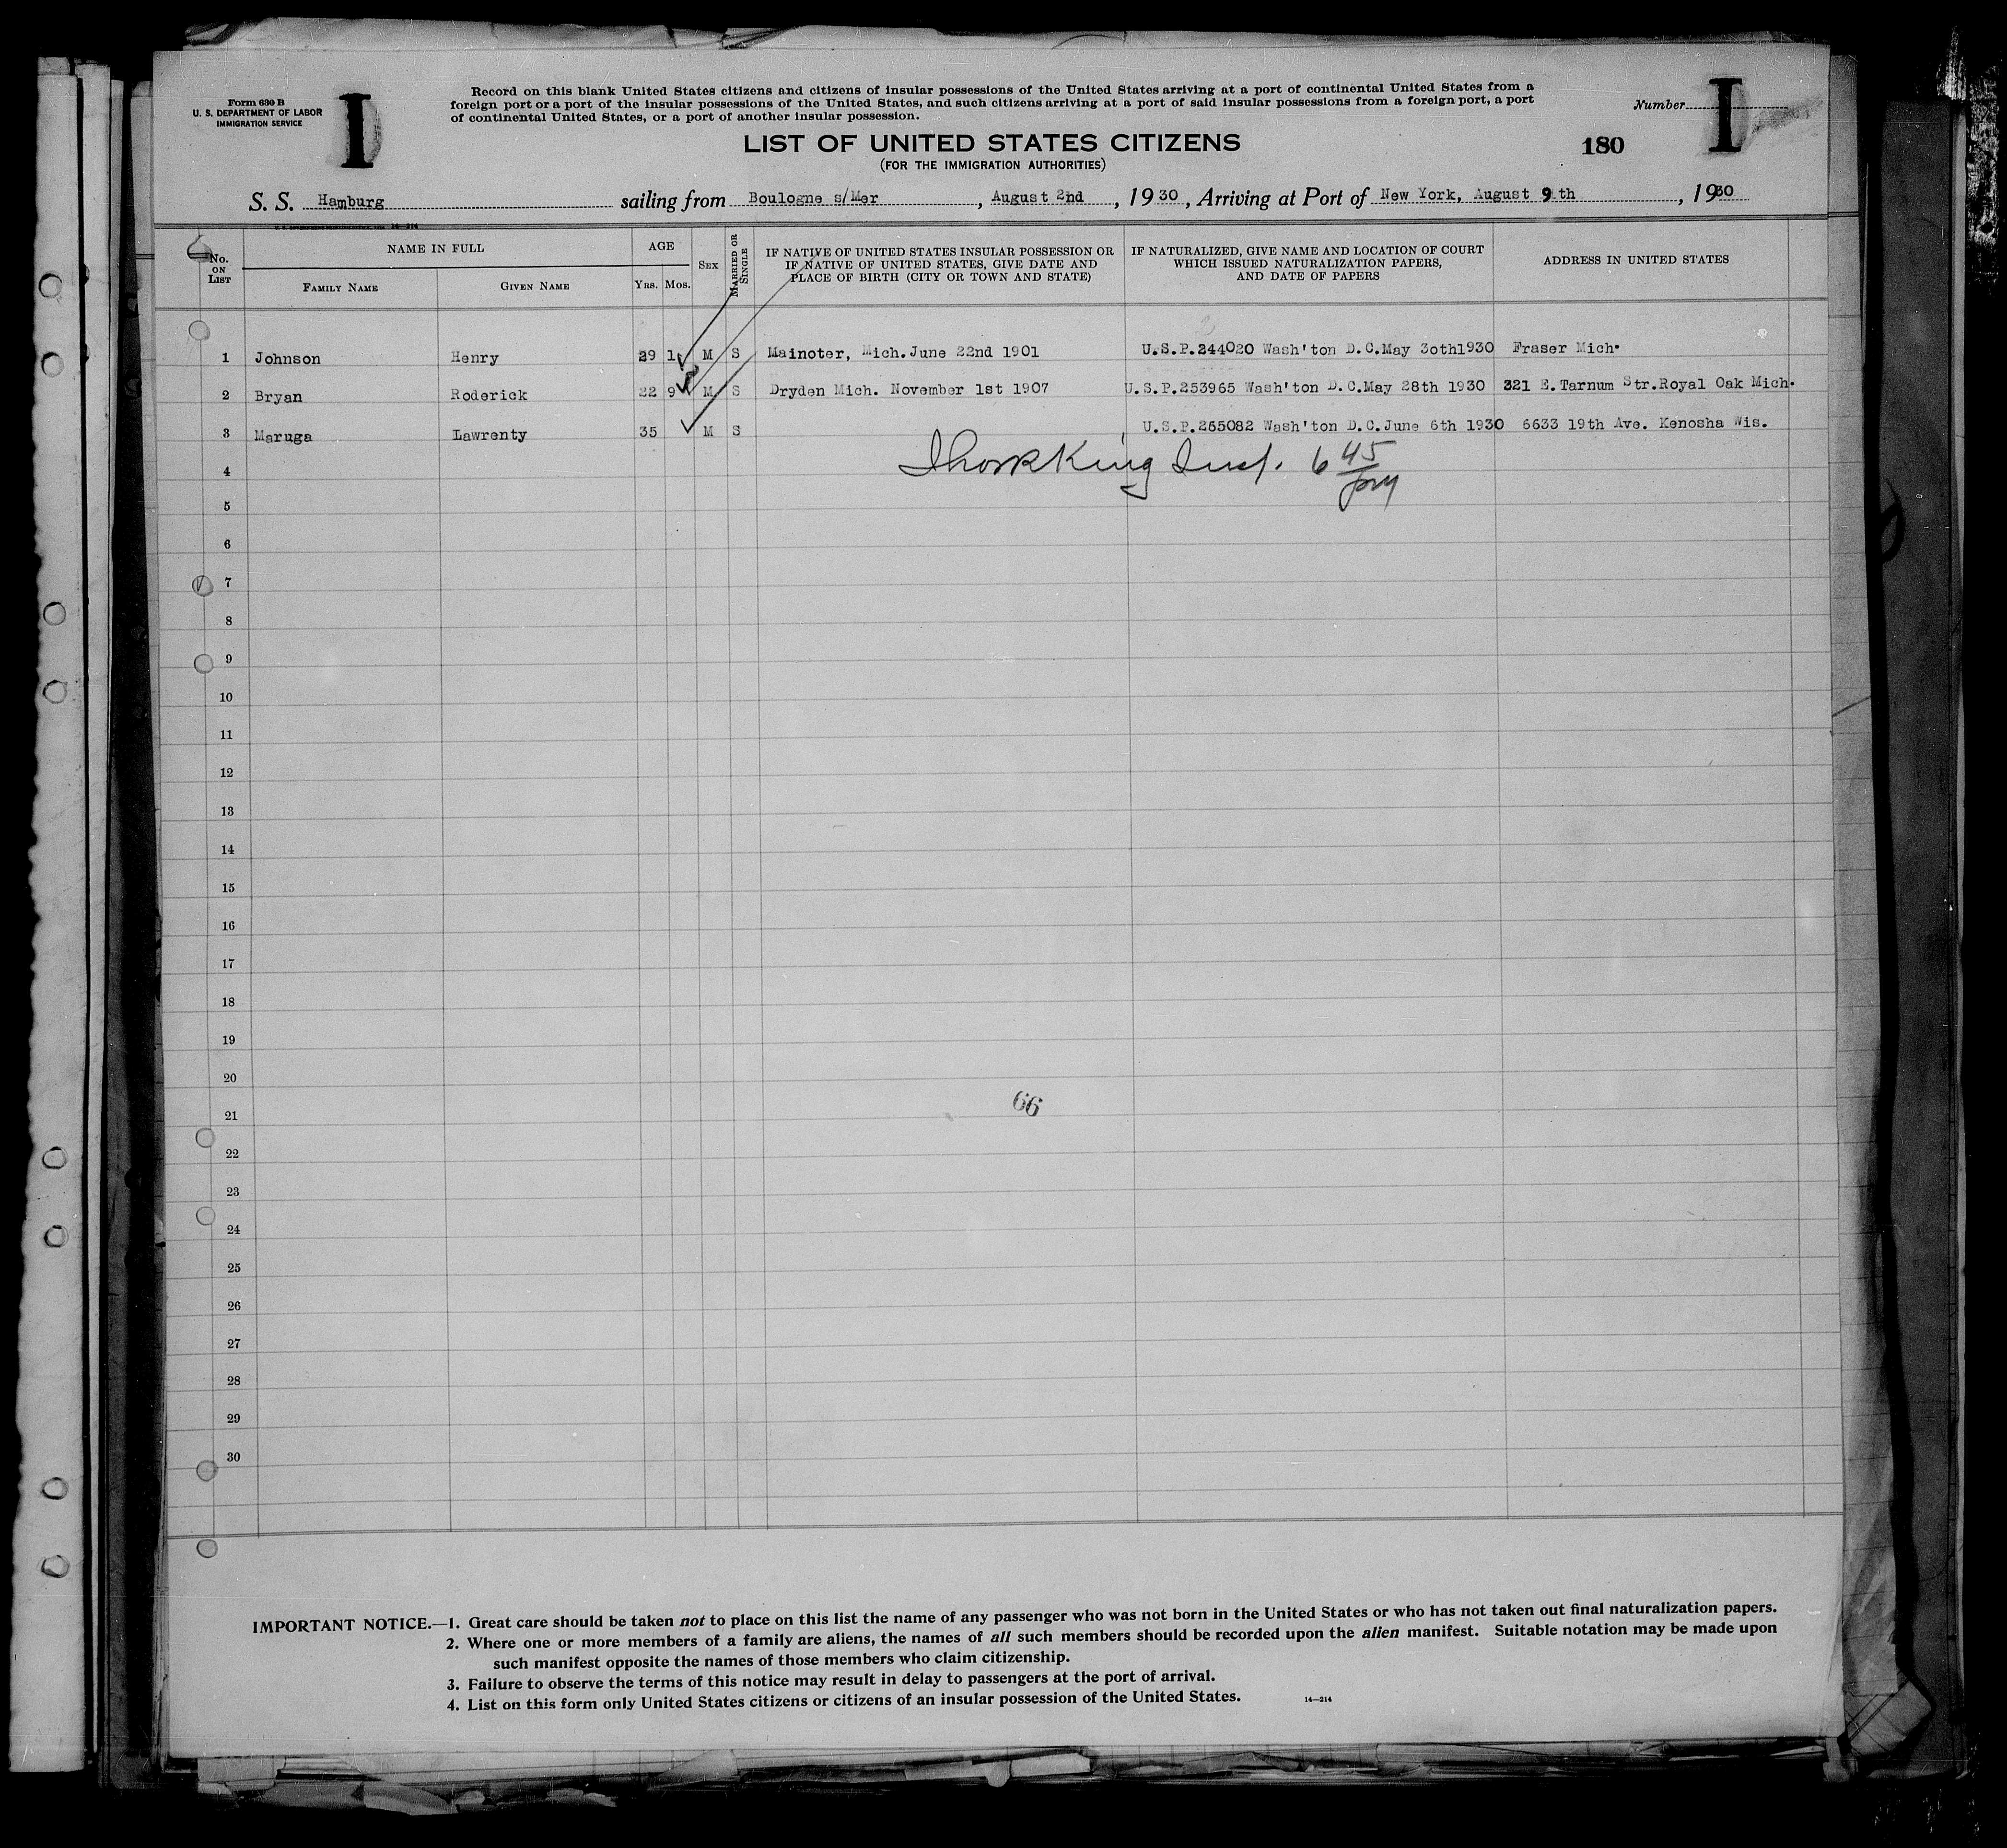 Form 630 B
U. S. DEPARTMENT OF LABOR
IMMIGRATION SERVICE
I
Record on this blank United States citizens and citizens of insular possessions of the United States arriving at a port of continental United States from a
foreign port or a port of the insular possessions of the United States, and such citizens arriving at a port of said insular possessions from a foreign port, a port
of continental United States, or a port of another insular possession.
Number I
LIST OF UNITED STATES CITIZENS
(FOR THE IMMIGRATION AUTHORITIES)
180
S. S. Hamburg sailing from Boulogne s/Mer, August 2nd, 1930, Arriving at Port of New York, August 9th, 1930
No. ON LIST NAME IN FULL FAMILY NAME GIVEN NAME AGE YRS. MOS. SEX MARRIED OR SINGLE IF NATIVE OF UNITED STATES INSULAR POSSESSION OR IF NATIVE OF UNITED STATES, GIVE DATE AND PLACE OF BIRTH (CITY OR TOWN AND STATE) IF NATURALIZED, GIVE NAME AND LOCATION OF COURT WHICH ISSUED NATURALIZATION PAPERS, AND DATE OF PAPERS ADDRESS IN UNITED STATES
1 Johnson Henry 29 1 M S Mainoter, Mich. June 22nd 1901 U.S.P.244020 Wash'ton D.C.May 3oth1930 Fraser Mich.
2 Bryan Roderick 22 9 M S Dryden Mich. November 1st 1907 U.S.P.253965 Wash'ton D.C.May 28th 1930 321 E.Tarnum Str.Royal Oak Mich.
3 Maruga Lawrenty 35 M S U.S.P.265082 Wash'ton D.C.June 6th 1930 6633 19th Ave. Kenosha Wis.
4 King Insp. 6 45 pm
5
6
7
8
9
10
11
12
13
14
15
16
17
18
19
20
66
21
22
23
24
25
26
27
28
29
30
IMPORTANT NOTICE.—1. Great care should be taken not to place on this list the name of any passenger who was not born in the United States or who has not taken out final naturalization papers.
2. Where one or more members of a family are aliens, the names of all such members should be recorded upon the alien manifest. Suitable notation may be made upon
such manifest opposite the names of those members who claim citizenship.
3. Failure to observe the terms of this notice may result in delay to passengers at the port of arrival.
4. List on this form only United States citizens or citizens of an insular possession of the United States. 14—214